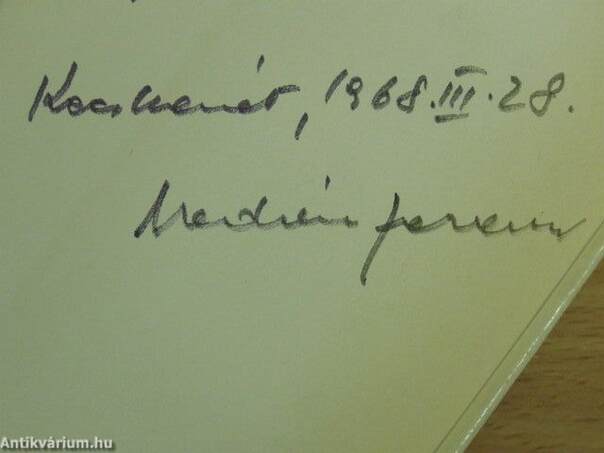 Kecskemét, 1968.III.28.
Ferenc
Antikvárium.hu